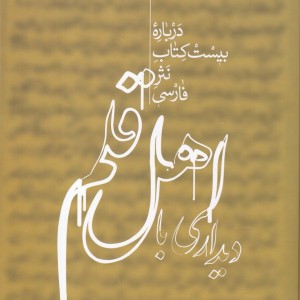 دَرْبارهٔ
بیسْت کِتابِ
نَثرِ
فارْسی
دیداری با اهل قلم